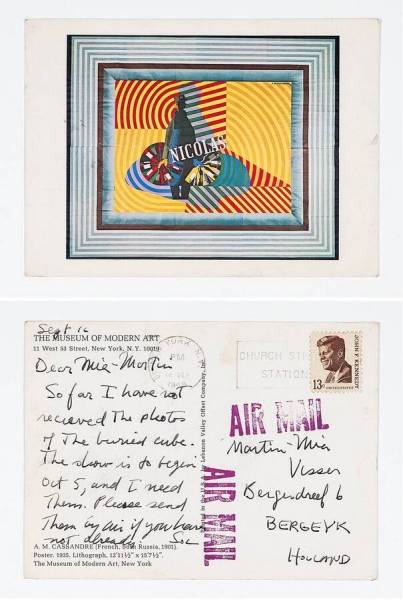 NICOLAS
Sept 16
THE MUSEUM OF MODERN ART
11 West 53 Street, New York, N.Y. 10019
Dear Mia-Martin
So far I have not
recieved the photos
of the buried cube.
The show is to begin
Oct 5, and I need
Them. Please send
Them by air if you have
not already Sol
A. M. CASSANDRE (French, born Russia, 1901).
Poster. 1935. Lithograph, 13'11½" x 15'7½".
The Museum of Modern Art, New York
Lebanon Valley Offset Company, Inc.
PM
CHURCH ST
STATION
JOHN F. KENNEDY
13c
UNITED STATES
AIR MAIL
AIR MAIL
Martin-Mia
Visser
Bergerdreef 6
BERGEYK
HOLLAND